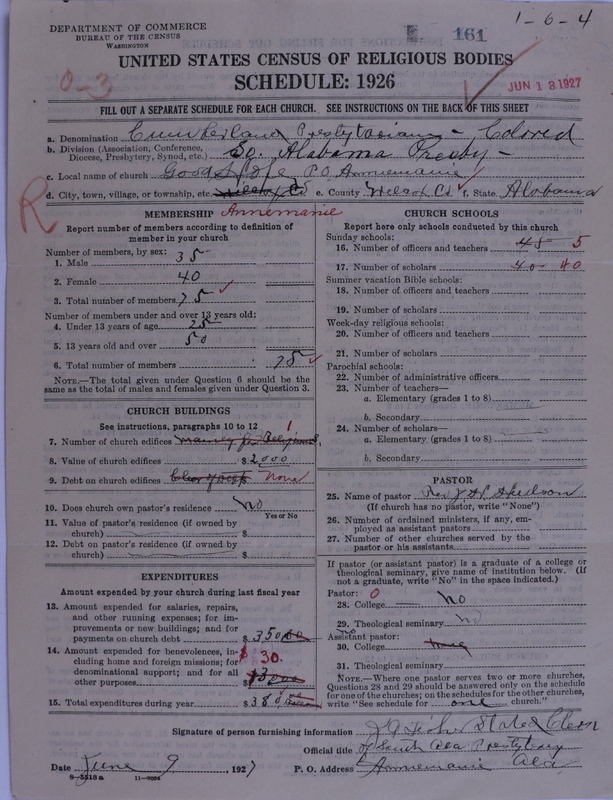 1-6-4
DEPARTMENT OF COMMERCE
BUREAU OF THE CENSUS
WASHINGTON
161
UNITED STATES CENSUS OF RELIGIOUS BODIES
SCHEDULE: 1926
0-3
JUN 13 1927
FILL OUT A SEPARATE SCHEDULE FOR EACH CHURCH. SEE INSTRUCTIONS ON THE BACK OF THIS SHEET
a. Denomination Cumberland Presbyterian - Colored
b. Division (Association, Conference, Diocese, Presbytery, Synod, etc.) So. Alabama Presby-
c. Local name of church Good Hope P.O. Annemanie
d. City, town, village, or township, etc. Wilcox Co e. County Wilcox Co f. State Alabama
R
Annemanie
MEMBERSHIP
Report number of members according to definition of member in your church
Number of members, by sex:
1. Male 35
2. Female 40
3. Total number of members 75
Number of members under and over 13 years old:
4. Under 13 years of age 25
5. 13 years old and over 50
6. Total number of members 75
NOTE.—The total given under Question 6 should be the same as the total of males and females given under Question 3.
CHURCH BUILDINGS
See instructions, paragraphs 10 to 12
7. Number of church edifices 1
8. Value of church edifices $ 2000
9. Debt on church edifices None
10. Does church own pastor's residence No
Yes or No
11. Value of pastor's residence (if owned by church) $
12. Debt on pastor's residence (if owned by church) $
EXPENDITURES
Amount expended by your church during last fiscal year
13. Amount expended for salaries, repairs, and other running expenses; for improvements or new buildings; and for payments on church debt $ 350
14. Amount expended for benevolences, including home and foreign missions; for denominational support; and for all other purposes $ 30.
15. Total expenditures during year $ 380
CHURCH SCHOOLS
Report here only schools conducted by this church
Sunday schools:
16. Number of officers and teachers 45 5
17. Number of scholars 40 40
Summer vacation Bible schools:
18. Number of officers and teachers
19. Number of scholars
Week-day religious schools:
20. Number of officers and teachers
21. Number of scholars
Parochial schools:
22. Number of administrative officers
23. Number of teachers—
a. Elementary (grades 1 to 8)
b. Secondary
24. Number of scholars—
a. Elementary (grades 1 to 8)
b. Secondary
PASTOR
25. Name of pastor Rev. J
(If church has no pastor, write "None")
26. Number of ordained ministers, if any, employed as assistant pastors
27. Number of other churches served by the pastor or his assistants
If pastor (or assistant pastor) is a graduate of a college or theological seminary, give name of institution below. (If not a graduate, write "No" in the space indicated.)
Pastor: 0
28. College No
29. Theological seminary No
Assistant pastor:
No
30. College
31. Theological seminary
NOTE.—Where one pastor serves two or more churches, Questions 28 and 29 should be answered only on the schedule for one of the churches; on the schedules for the other churches, write "See schedule for one church."
Signature of person furnishing information Stated Clerk
Official title of South Ala Presbytery
Date June 9, 1927 P. O. Address Annemanie Ala
8-5518a 11-9224